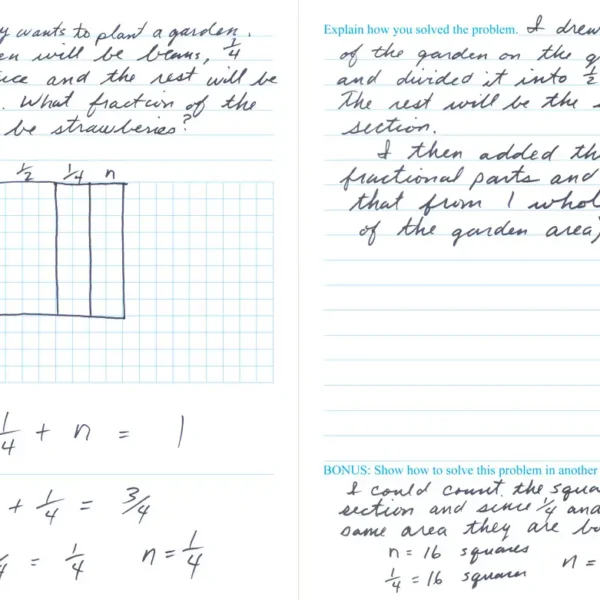 y wants to plant a garden.
en will be beans, 1/4
uce and the rest will be
. What fraction of the
be strawberries?
1/2 1/4 n
1/4 + n = 1
+ 1/4 = 3/4
/4 = 1/4 n = 1/4
Explain how you solved the problem. I drew
of the garden on the g
and divided it into 1/2
The rest will be the s
section.
I then added th
fractional parts and
that from 1 whol
of the garden area,
BONUS: Show how to solve this problem in another
I could count the squa
section and since 1/4 and
same area they are bo
n = 16 squares n =
1/4 = 16 squares